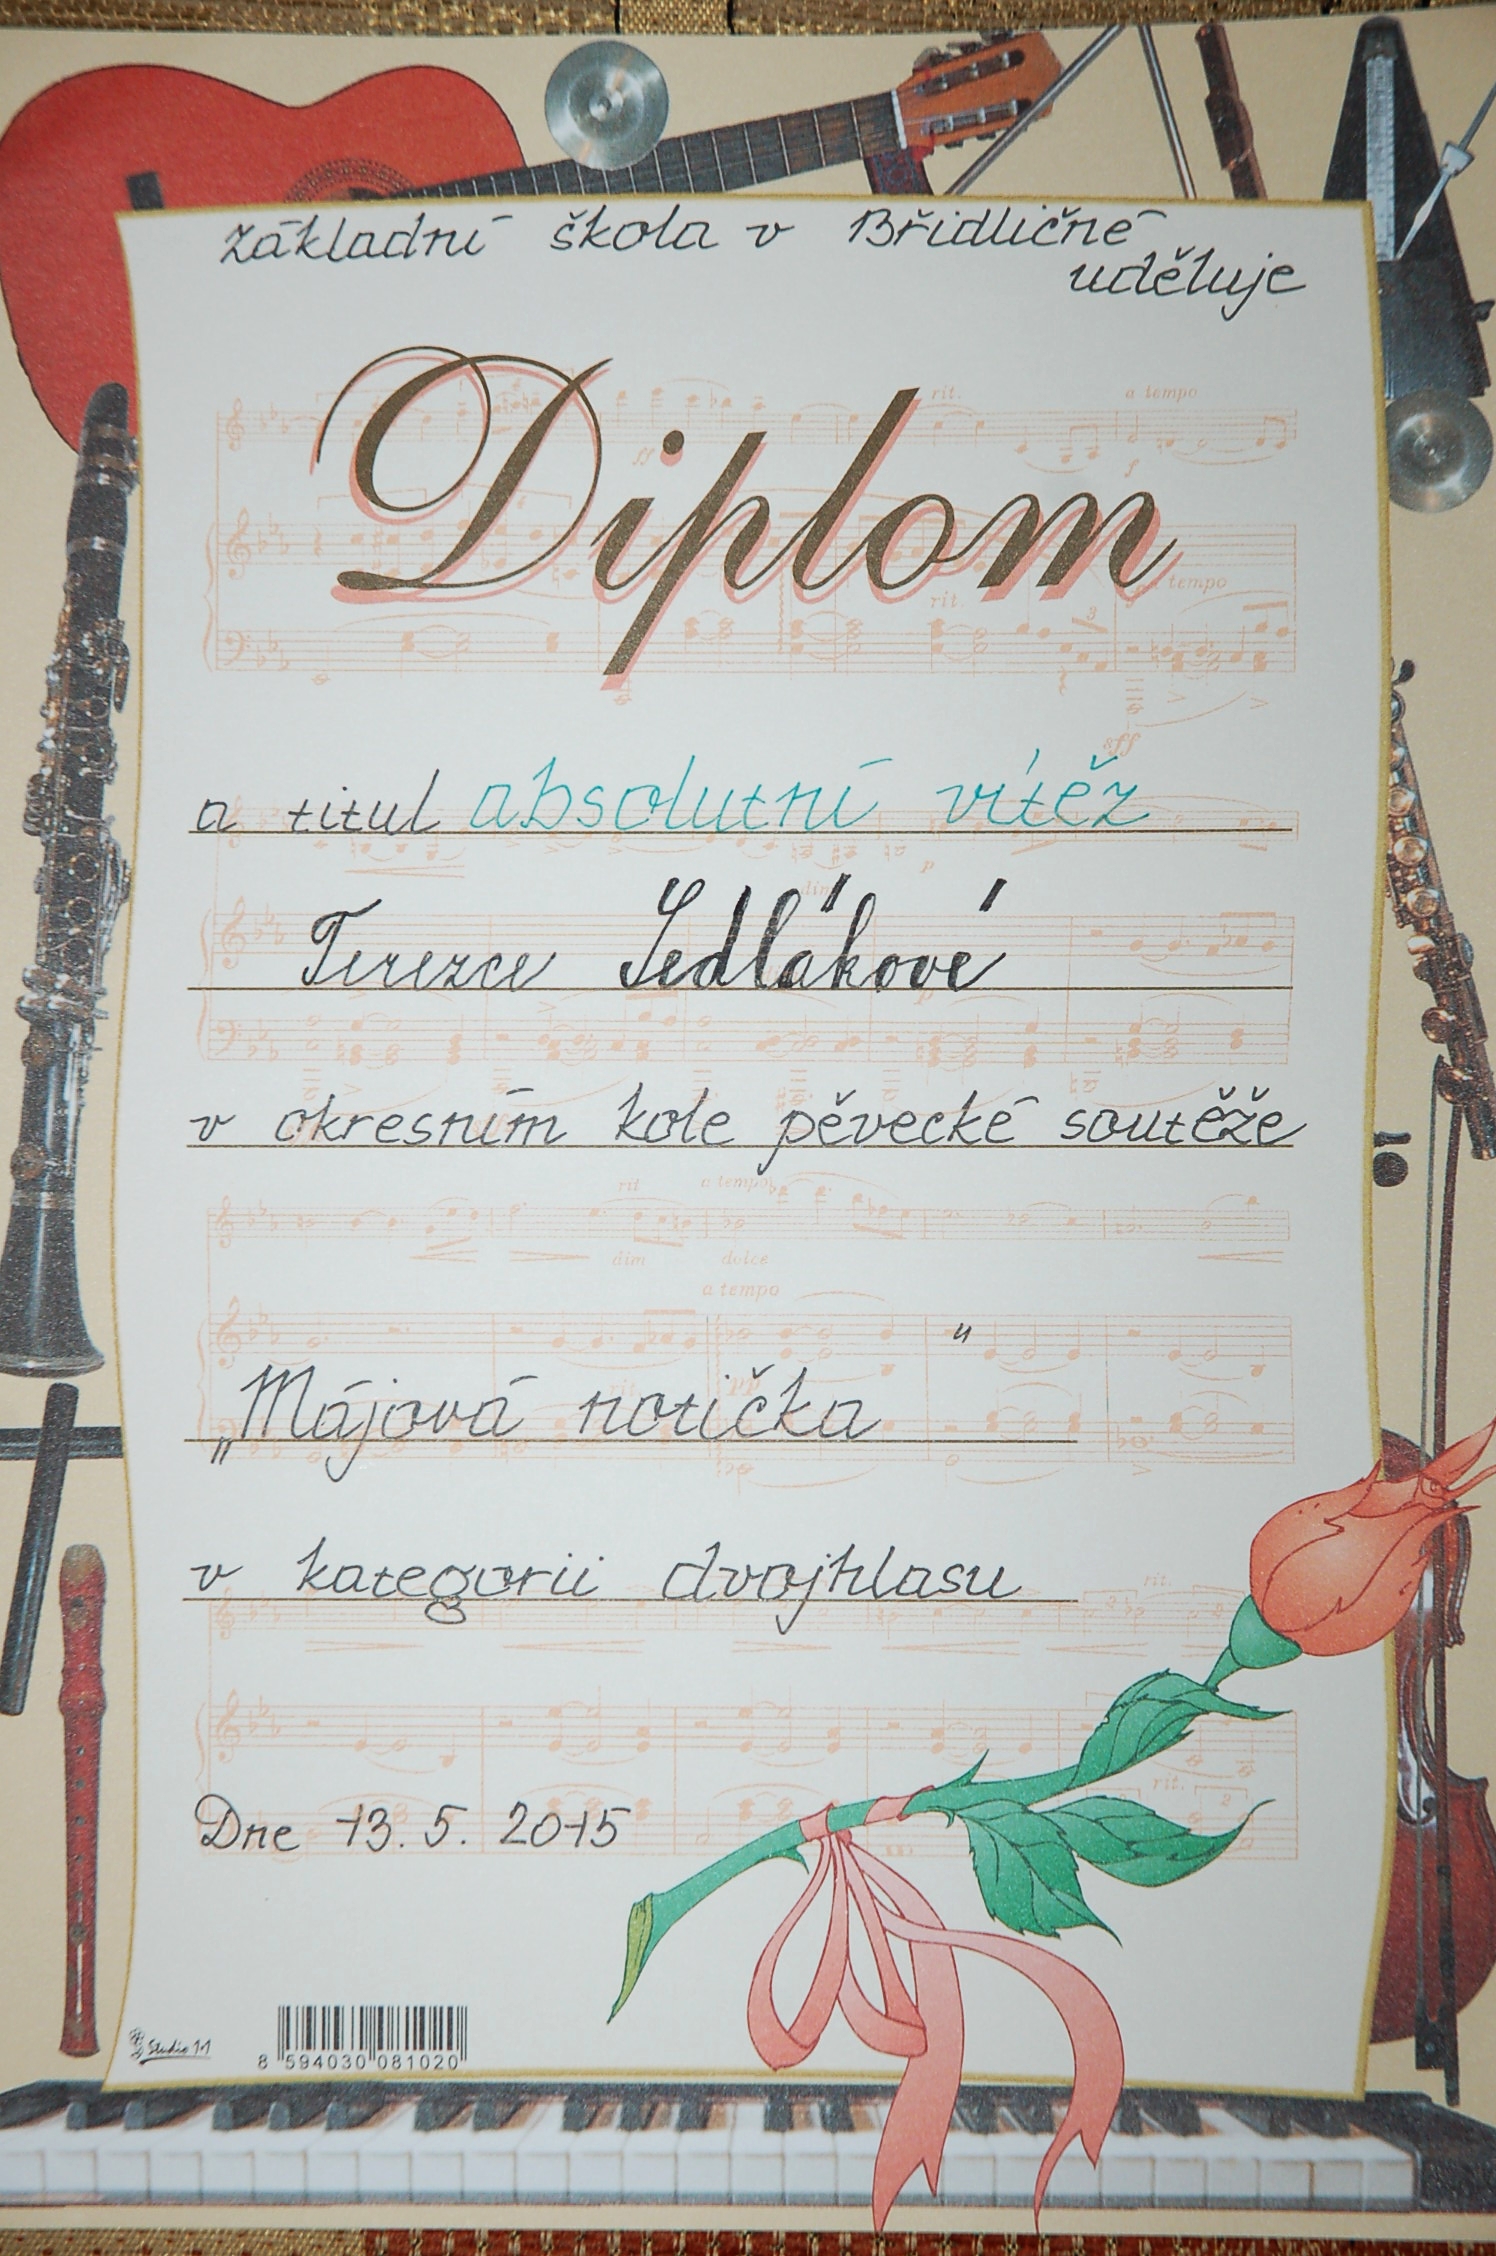 Základní škola v Břidličné
uděluje
Diplom
a titul absolutní vítěz
Terezce Sedlákové
v okresním kole pěvecké soutěže
„Májová notička"
v kategorii dvojhlasu
Dne 13. 5. 2015
Studio 1+1
8 594030 081020
rit.
a tempo
ff
f
tempo
rit.
sff
dim
p
rit
a tempo
dim
dolce
a tempo
pp
rit.
rit.